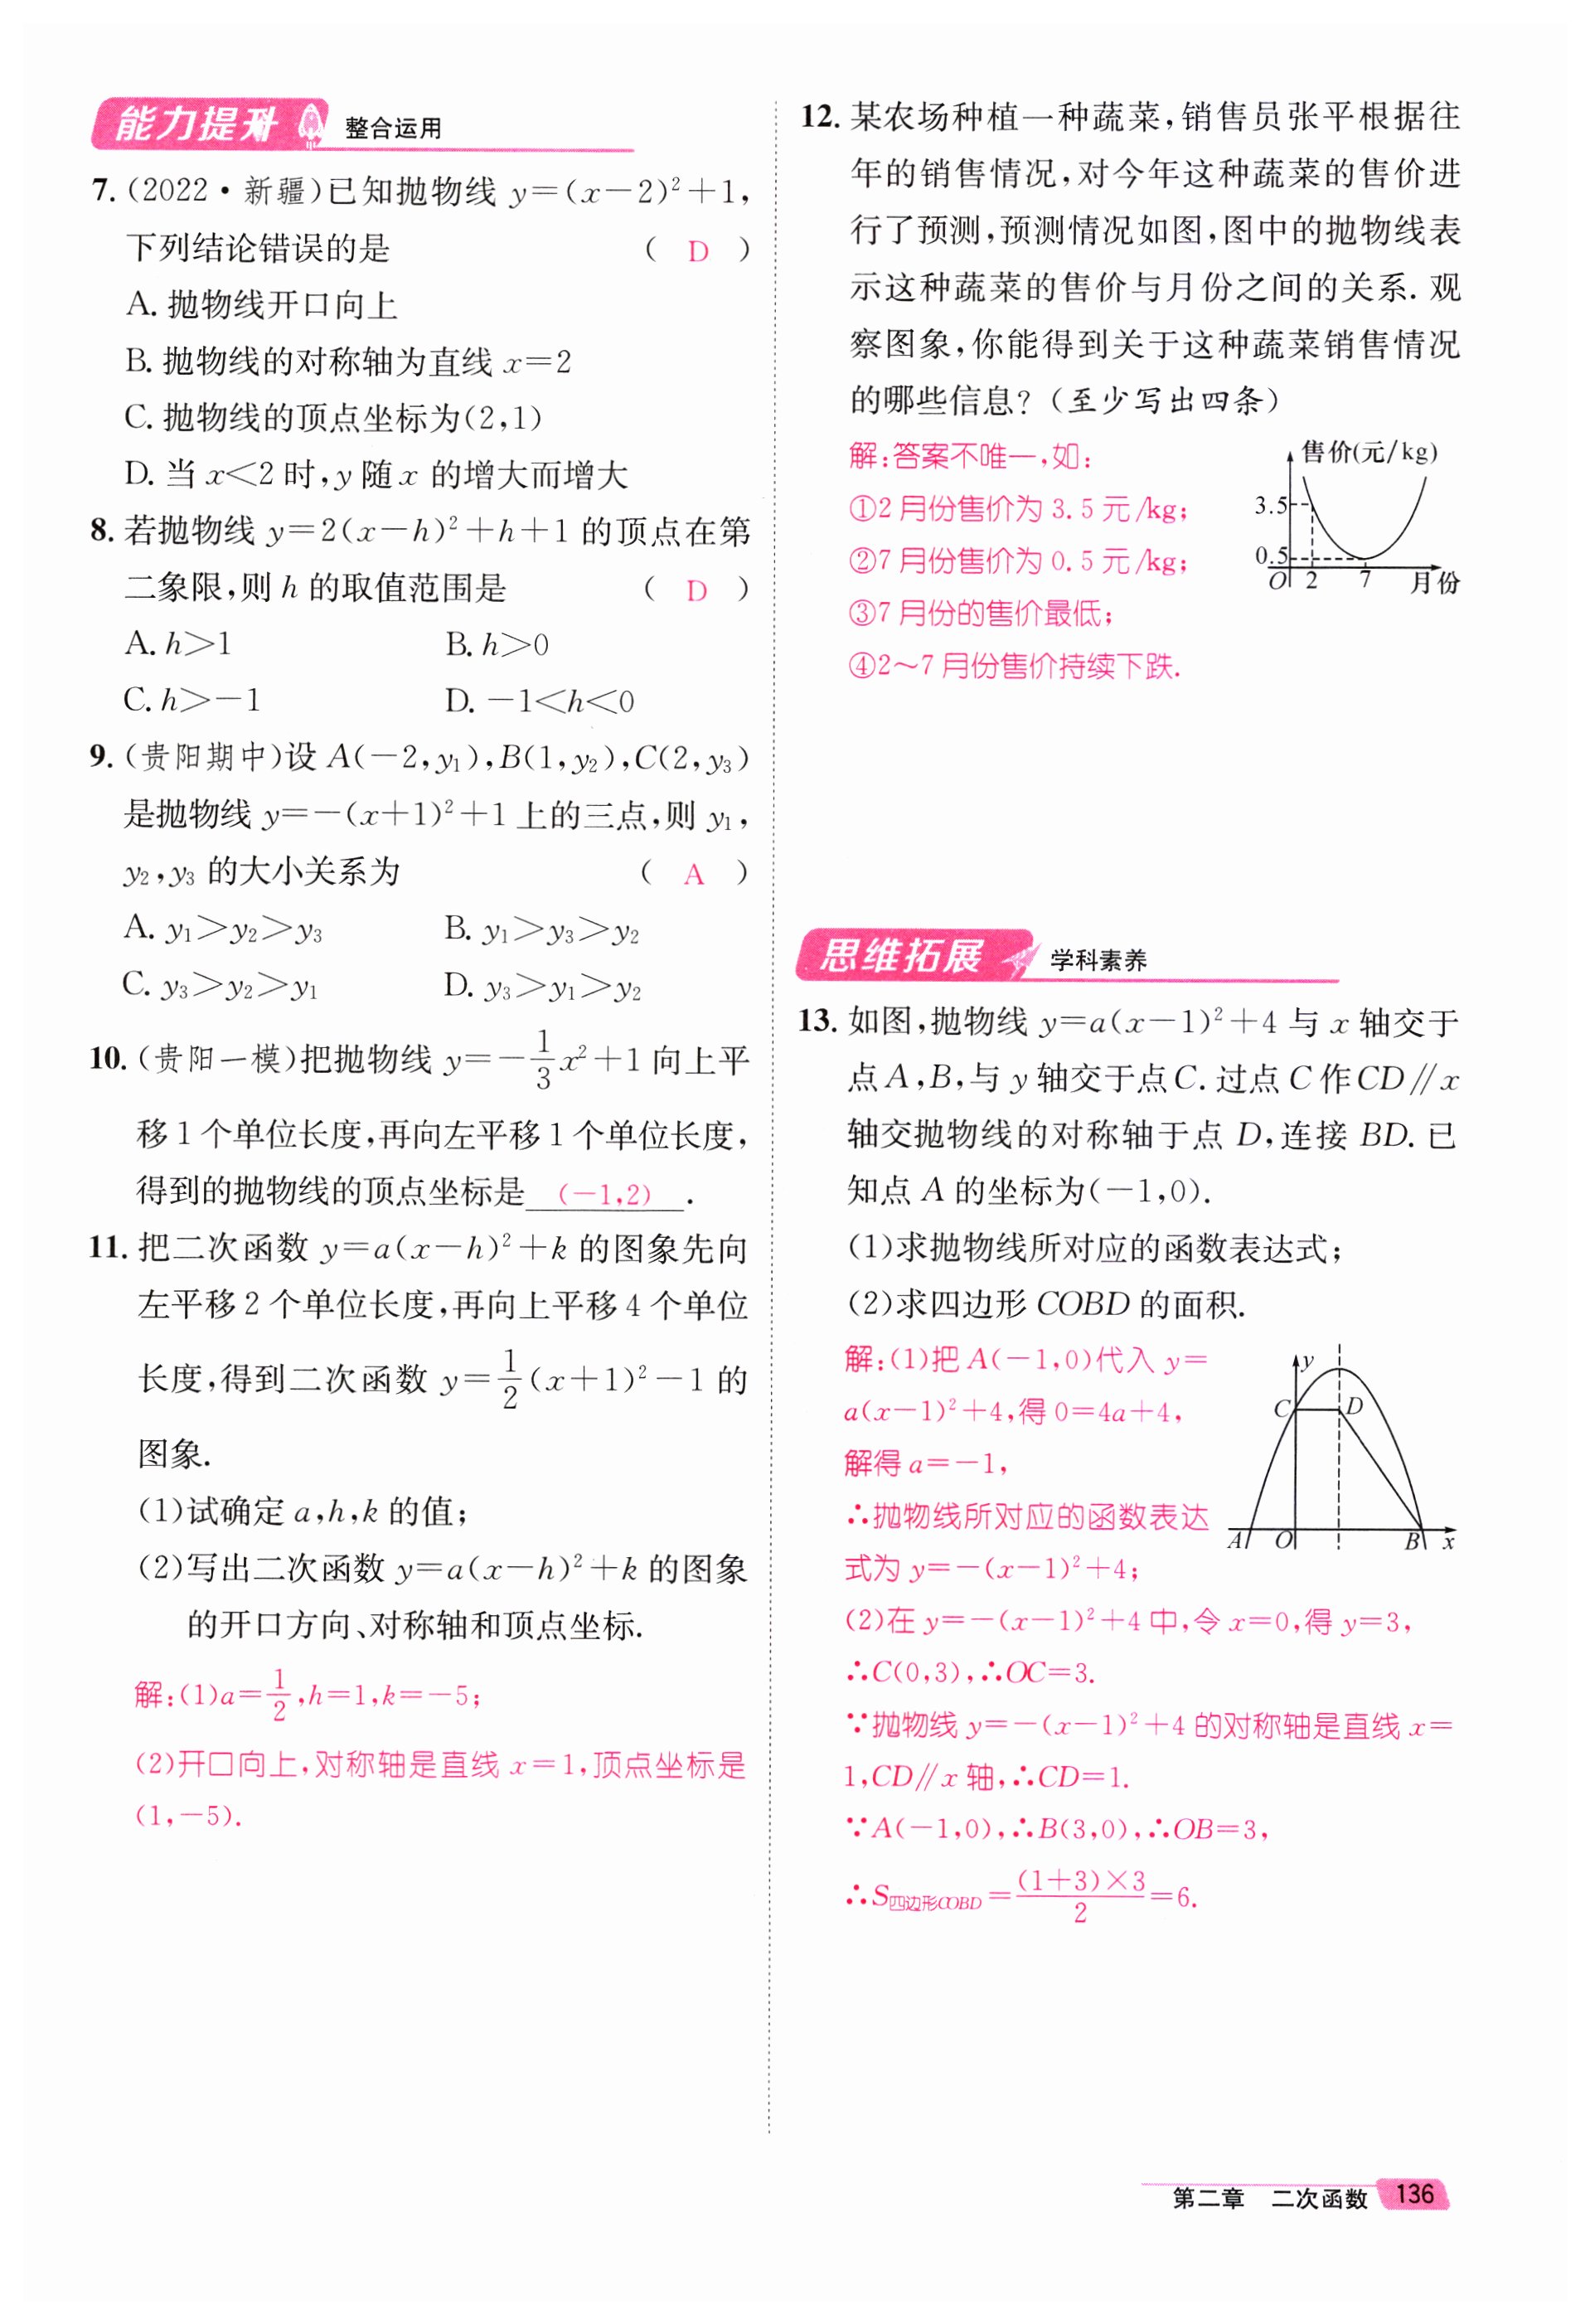 能力提升 整合运用
7.(2022·新疆)已知抛物线 y=(x-2)²+1,
下列结论错误的是 ( D )
A. 抛物线开口向上
B. 抛物线的对称轴为直线 x=2
C. 抛物线的顶点坐标为(2,1)
D. 当 x<2 时,y 随 x 的增大而增大
8. 若抛物线 y=2(x-h)²+h+1 的顶点在第
二象限,则 h 的取值范围是 ( D )
A. h>1 B. h>0
C. h>-1 D. -1<h<0
9.(贵阳期中)设 A(-2,y₁),B(1,y₂),C(2,y₃)
是抛物线 y=-(x+1)²+1 上的三点,则 y₁,
y₂,y₃ 的大小关系为 ( A )
A. y₁>y₂>y₃ B. y₁>y₃>y₂
C. y₃>y₂>y₁ D. y₃>y₁>y₂
10.(贵阳一模)把抛物线 y=-1/3x²+1 向上平
移 1 个单位长度,再向左平移 1 个单位长度,
得到的抛物线的顶点坐标是 (-1,2) .
11. 把二次函数 y=a(x-h)²+k 的图象先向
左平移 2 个单位长度,再向上平移 4 个单位
长度,得到二次函数 y=1/2(x+1)²-1 的
图象.
(1)试确定 a,h,k 的值;
(2)写出二次函数 y=a(x-h)²+k 的图象
的开口方向、对称轴和顶点坐标.
解:(1)a=1/2,h=1,k=-5;
(2)开口向上,对称轴是直线 x=1,顶点坐标是
(1,-5).
12. 某农场种植一种蔬菜,销售员张平根据往
年的销售情况,对今年这种蔬菜的售价进
行了预测,预测情况如图,图中的抛物线表
示这种蔬菜的售价与月份之间的关系. 观
察图象,你能得到关于这种蔬菜销售情况
的哪些信息?(至少写出四条)
解:答案不唯一,如:
①2 月份售价为 3.5 元/kg;
②7 月份售价为 0.5 元/kg;
③7 月份的售价最低;
④2~7 月份售价持续下跌.
售价(元/kg)
3.5
0.5
O 2 7 月份
思维拓展 学科素养
13. 如图,抛物线 y=a(x-1)²+4 与 x 轴交于
点 A,B,与 y 轴交于点 C. 过点 C 作 CD∥x
轴交抛物线的对称轴于点 D,连接 BD. 已
知点 A 的坐标为(-1,0).
(1)求抛物线所对应的函数表达式;
(2)求四边形 COBD 的面积.
解:(1)把 A(-1,0)代入 y=
a(x-1)²+4,得 0=4a+4,
解得 a=-1,
∴抛物线所对应的函数表达
式为 y=-(x-1)²+4;
y
C D
A O B x
(2)在 y=-(x-1)²+4 中,令 x=0,得 y=3,
∴C(0,3),∴OC=3.
∵抛物线 y=-(x-1)²+4 的对称轴是直线 x=
1,CD∥x 轴,∴CD=1.
∵A(-1,0),∴B(3,0),∴OB=3,
∴S四边形COBD=(1+3)×3/2=6.
第二章 二次函数 136